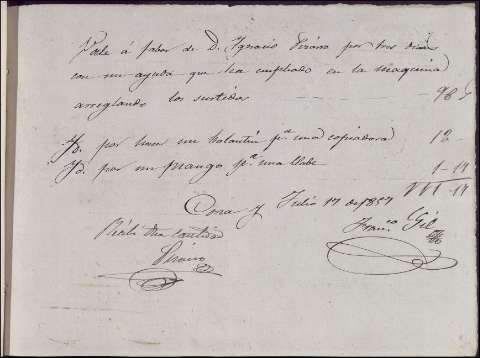 Vale á fabor de D. Ignacio Pirano por tres dias
con un ayuda que ha empleado en la maquina
arreglando los surtidos 96
Yd. por hacer un bolantin pa. una copiadora 12
Yd. por un mango pa. una llabe 1-17
-17
y Julio 17 de 1857
Recibi la cantidad
Franco. Gil